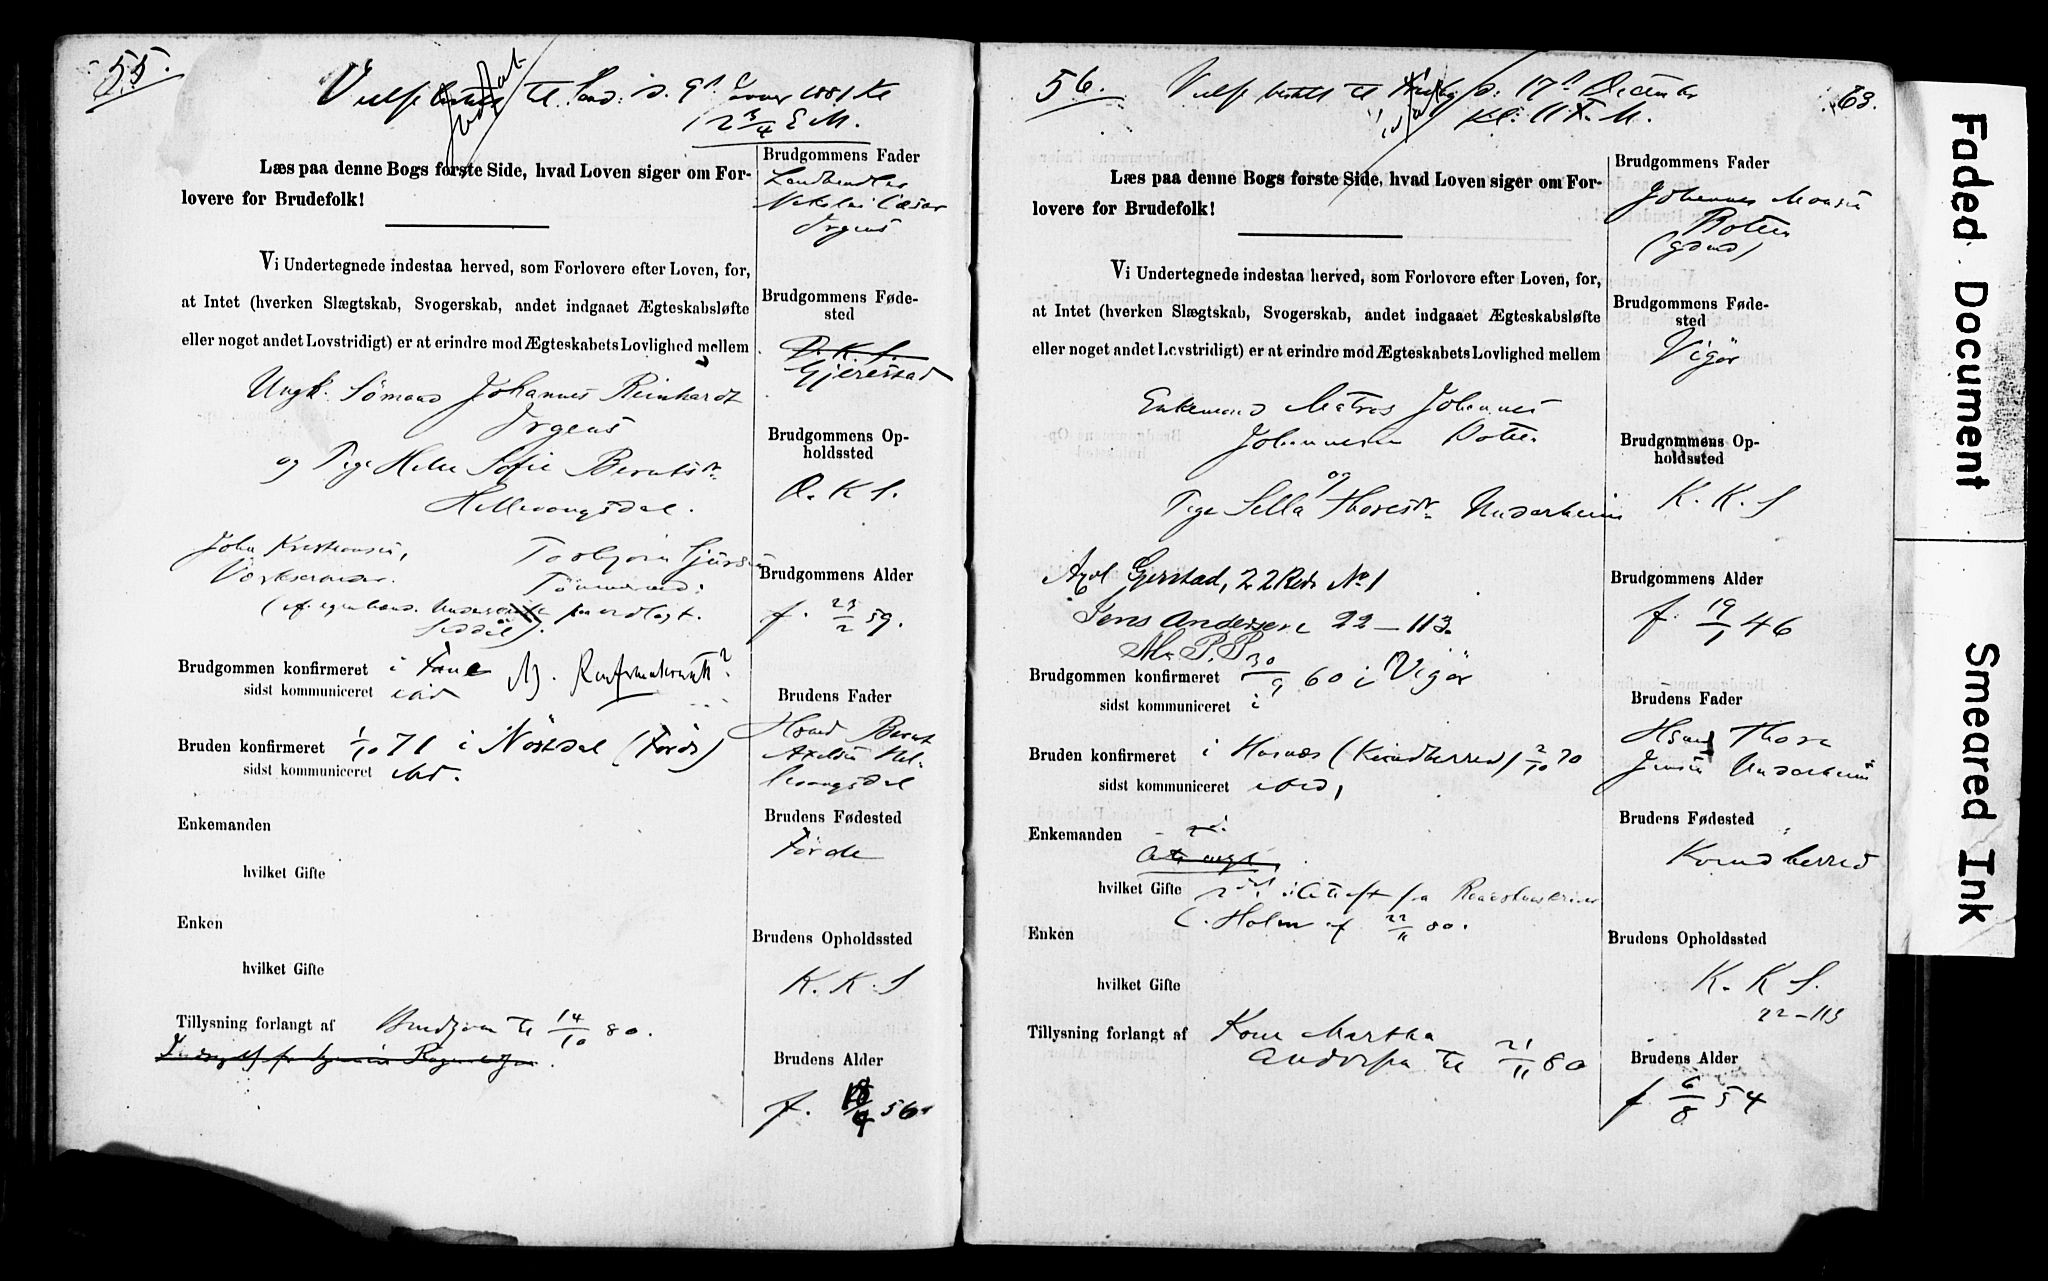 55.
Vielse bestilt til Lørd: d. 9d Januar 1881 Kl
12 3/4 E M.
Læs paa denne Bogs første Side, hvad Loven siger om For-
lovere for Brudefolk!
Vi Undertegnede indestaa herved, som Forlovere efter Loven, for,
at Intet (hverken Slægtskab, Svogerskab, andet indgaaet Ægteskabsløfte
eller noget andet Lovstridigt) er at erindre mod Ægteskabets Lovlighed mellem
Ungk. Sømand Johannes Reinhardt
Irgens
og Pige Helene Sofie Berntsdr
Hellevangsdal.
John Kristiansen, Torbjørn Sjursen
Tømmermand:
Brudgommen konfirmeret i Fane
sidst kommuniceret ibid
Bruden konfirmeret 1/10 71 i Nøstdal (Førde)
sidst kommuniceret ibid.
Enkemanden
hvilket Gifte
Enken
hvilket Gifte
Tillysning forlangt af Brudgom til 14/10 80.
Brudgommens Fader
Landhandler
Nikolai Cæsar
Irgens
Brudgommens Føde-
sted
D. K. S.
Gjerestad
Brudgommens Op-
holdssted
D. K. S.
Brudgommens Alder
f. 23/2 59.
Brudens Fader
Hmd Bernt
Axelsen Hel-
levangsdal
Brudens Fødested
Førde
Brudens Opholdssted
K. K. S
Brudens Alder
f. 56
56.
Vielse bestilt til d: 17d December
Kl: 11 F. M.
63.
Læs paa denne Bogs første Side, hvad Loven siger om For-
lovere for Brudefolk!
Vi Undertegnede indestaa herved, som Forlovere efter Loven, for,
at Intet (hverken Slægtskab, Svogerskab, andet indgaaet Ægteskabsløfte
eller noget andet Lovstridigt) er at erindre mod Ægteskabets Lovlighed mellem
Enkemand Matros Johannes
Johannesen Boten
og
Pige Sella Thoresdr Underheim
Axel Gjerstad, 22 Rode No 1
Jens Andersen 22 – 113.
M. P. P
Brudgommen konfirmeret 30/9 60 i Vigør
sidst kommuniceret i
Bruden konfirmeret i Husnæs (Kvindherred) 2/10 70
sidst kommuniceret ibid,
Enkemanden
hvilket Gifte
Holm af 22/11 80.
Enken
hvilket Gifte
Tillysning forlangt af Kone Martha
Andersen til 21/11 80
Brudgommens Fader
Johannes Monsen
Boten
(gdmd)
Brudgommens Føde-
sted
Vigør
Brudgommens Op-
holdssted
K. K. S
Brudgommens Alder
f. 19/1 46
Brudens Fader
Hsmd Thore
Jensen Underheim
Brudens Fødested
Kvindherred
Brudens Opholdssted
K. K S.
22 – 113
Brudens Alder
f. 6/8 54
Faded Document
Smeared Ink